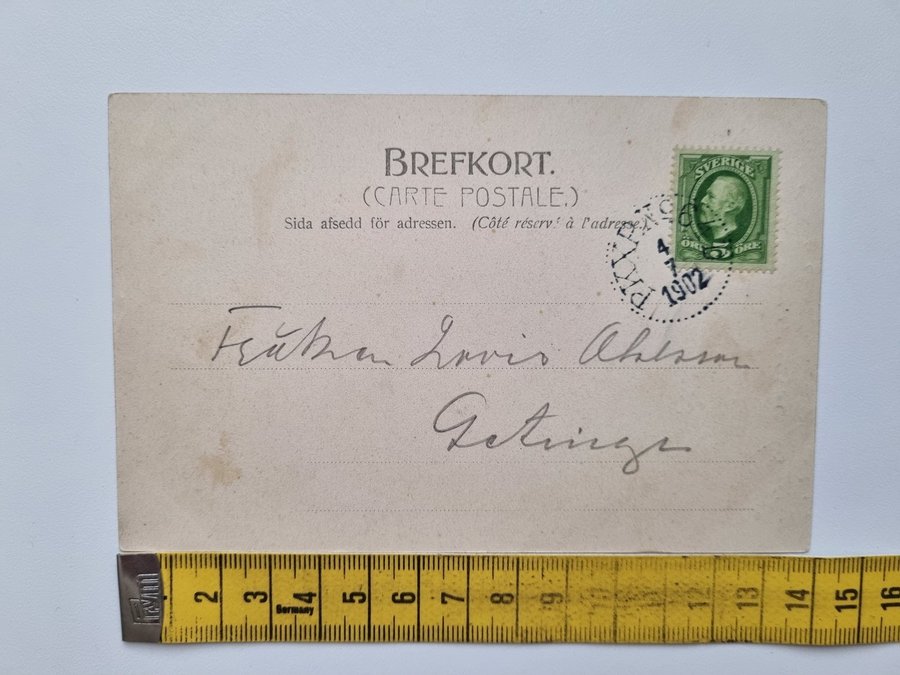 BREFKORT.
(CARTE POSTALE.)
Sida afsedd för adressen. (Côté réservé à l'adresse.)
SVERIGE
ÖRE 5 ÖRE
PKXP
4
7
1902
Fröken Lovis Ohlsson
Getinge
FAVM
2 3 4 5 6 7 8 9 10 11 12 13 14 15 16
Germany